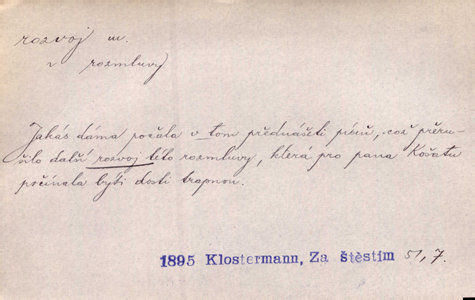 rozvoj m.
r rozmluvy
Jakás dáma počala v tom přednášeti píseň, což přeru-
šilo další rozvoj této rozmluvy, která pro pana Košatu
počínala býti dosti trapnou.
1895 Klostermann, Za štěstím 51, 7.